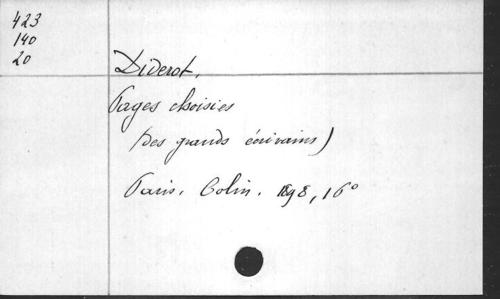 423
140
20
Diderot.
Pages choisies
(des grands écrivains)
Paris. Colin. 1898, 16°